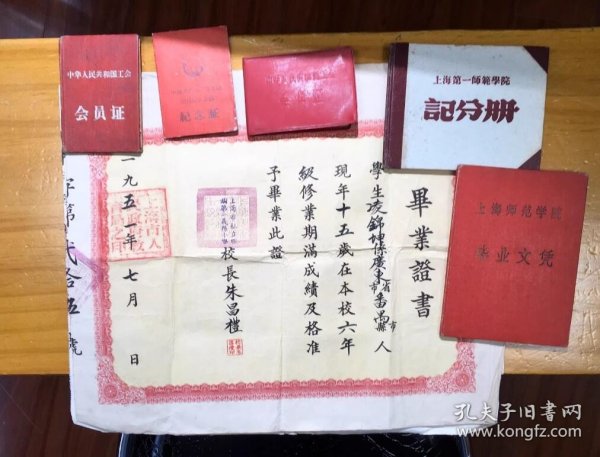 中华人民共和国工会
会员证
紀念証
上海第一師範學院
記分册
上海师范学院
毕业文凭
畢業證書
學生凌錦坤係廣東省番禺縣人
市 市
現年十五歲在本校六年
級修業期滿成績及格准
予畢業此證
校長朱昌
一九五一年七月 日
字第貳拾伍號
孔夫子旧书网
www.kongfz.com